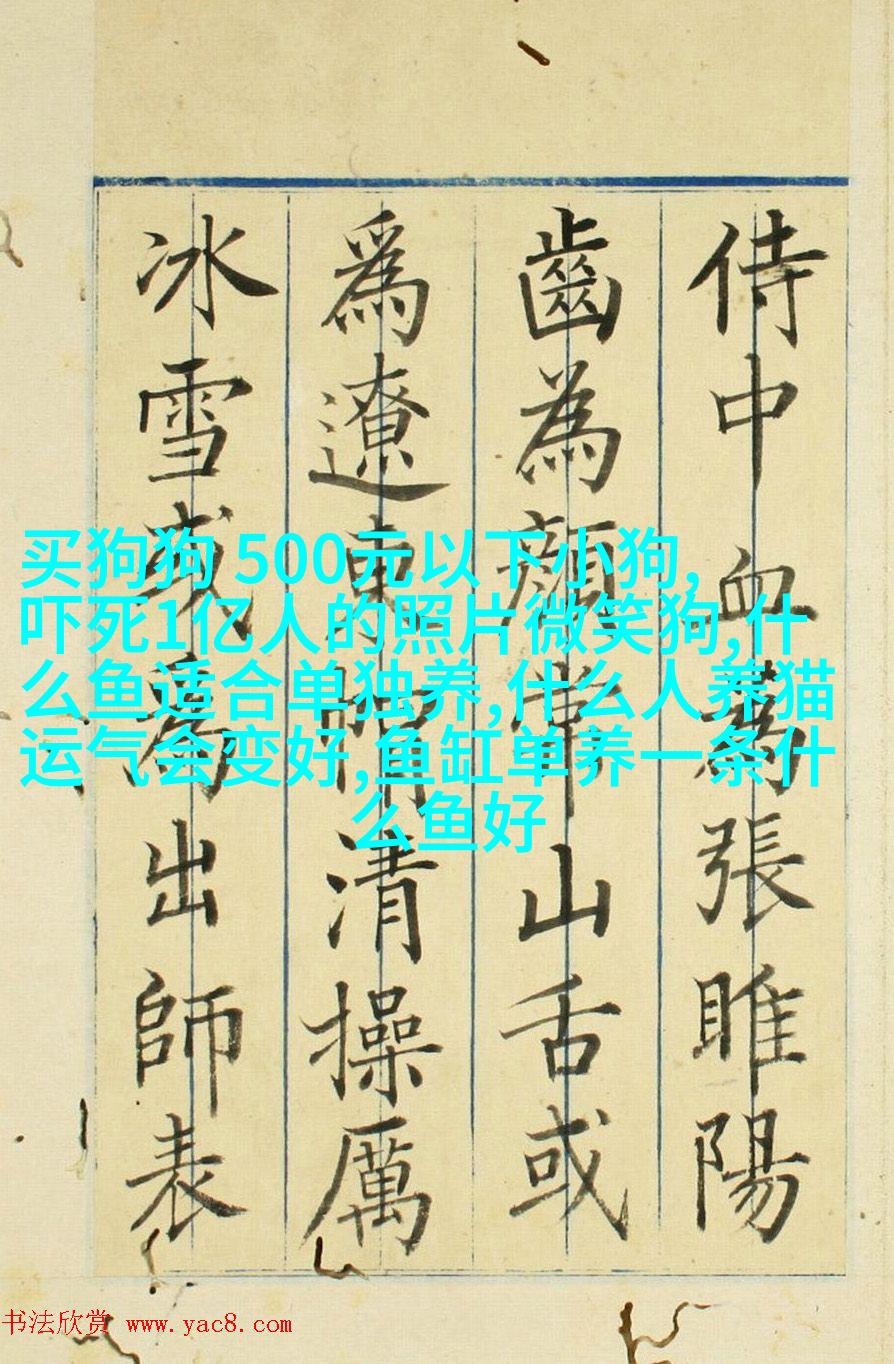 侍中血為張睢陽
齒為顏常山舌或
爲遼東帽清操厲
冰雪或爲出師表
买狗狗 500元以下小狗,
吓死1亿人的照片微笑狗,什
么鱼适合单独养,什么人养猫
运气会变好,鱼缸单养一条什
么鱼好
书法欣赏 www.yac8.com